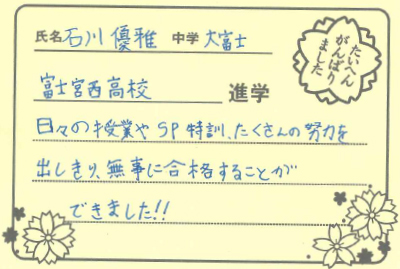 氏名 石川 優雅 中学 大富士
富士宮西高校 進学
日々の授業や SP特訓、たくさんの努力を
出しきり、無事に合格することが
できました!!
たいへん
がんばり
ました